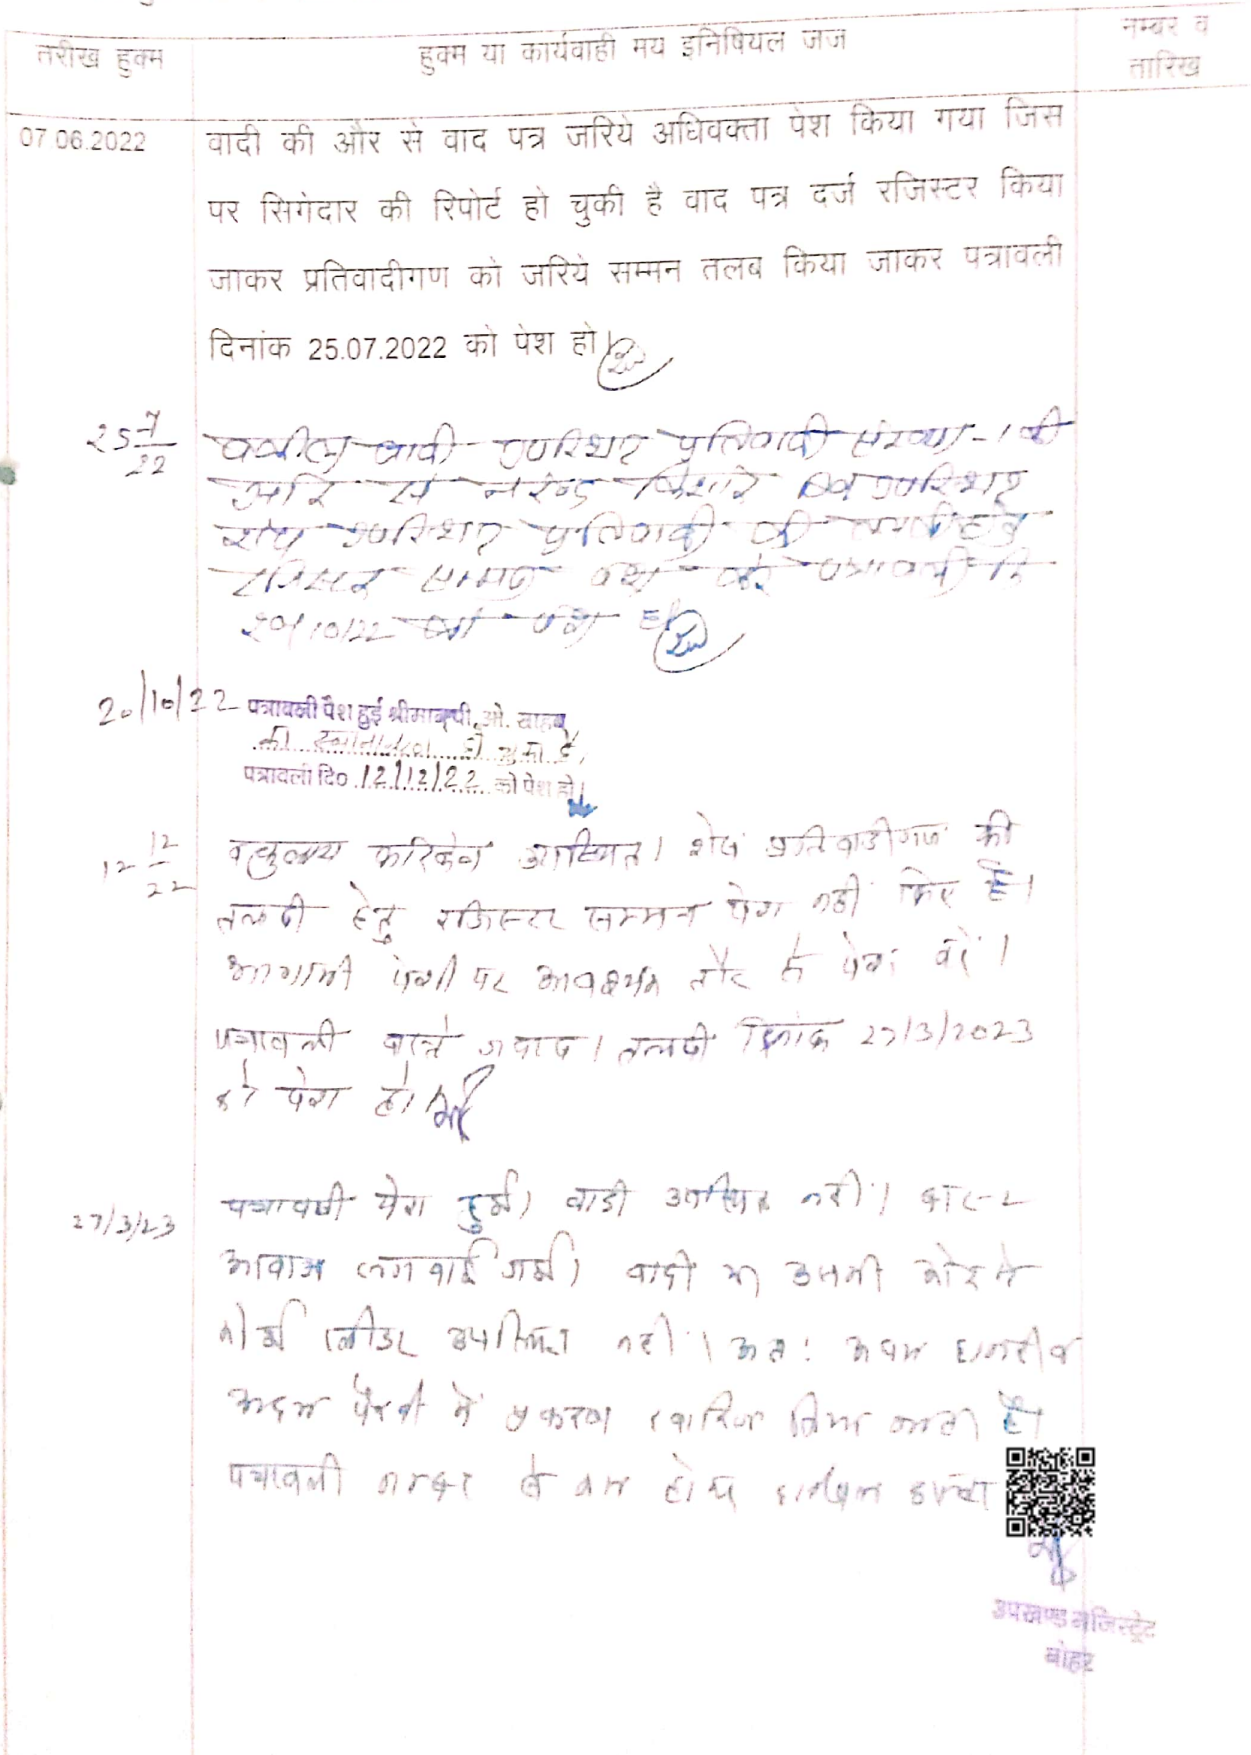 तरीख हुक्म
हुक्म या कार्यवाही मय इनिषियल जज
नम्बर व
तारिख
07.06.2022
वादी की और से वाद पत्र जरिये अधिवक्ता पेश किया गया जिस
पर सिगेदार की रिपोर्ट हो चुकी है वाद पत्र दर्ज रजिस्टर किया
जाकर प्रतिवादीगण को जरिये सम्मन तलब किया जाकर पत्रावली
दिनांक 25.07.2022 को पेश हो।
25 7/22
वकील वादी उपस्थित प्रतिवादी संख्या-1 की
और से नरेन्द्र किशोर उपस्थित
शेष प्रतिवादी की तलबी हेतु
रजिस्टर सम्मन पेश करे पत्रावली दि
20/10/22 को पेश हो
20/10/22
पत्रावली पेश हुई श्रीमान् पी. ओ. साहब
का स्थानान्तरण हो चुका है,
पत्रावली दि० 12/12/22 को पेश हो।
12 12/22
फरिकेन उपस्थित। शेष प्रतिवादीगण की
तलबी हेतु रजिस्टर सम्मन पेश नही किए है।
आगामी पेशी पर आवश्यक तौर से पेश करें।
पत्रावली वास्ते जवाब / तलबी दिनांक 27/3/2023
को पेश हो।
27/3/23
पत्रावली पेश हुई। वादी उपस्थित नही। बार-2
आवाज लगवाई गई। वादी या उसकी ओर से
कोई प्लीडर उपस्थित नही। अतः अदम हाजरी व
अदम पैरवी में प्रकरण खारिज किया जाता है।
पत्रावली नम्बर से कम होकर दाखिल दफ्तर
उपखण्ड मजिस्ट्रेट